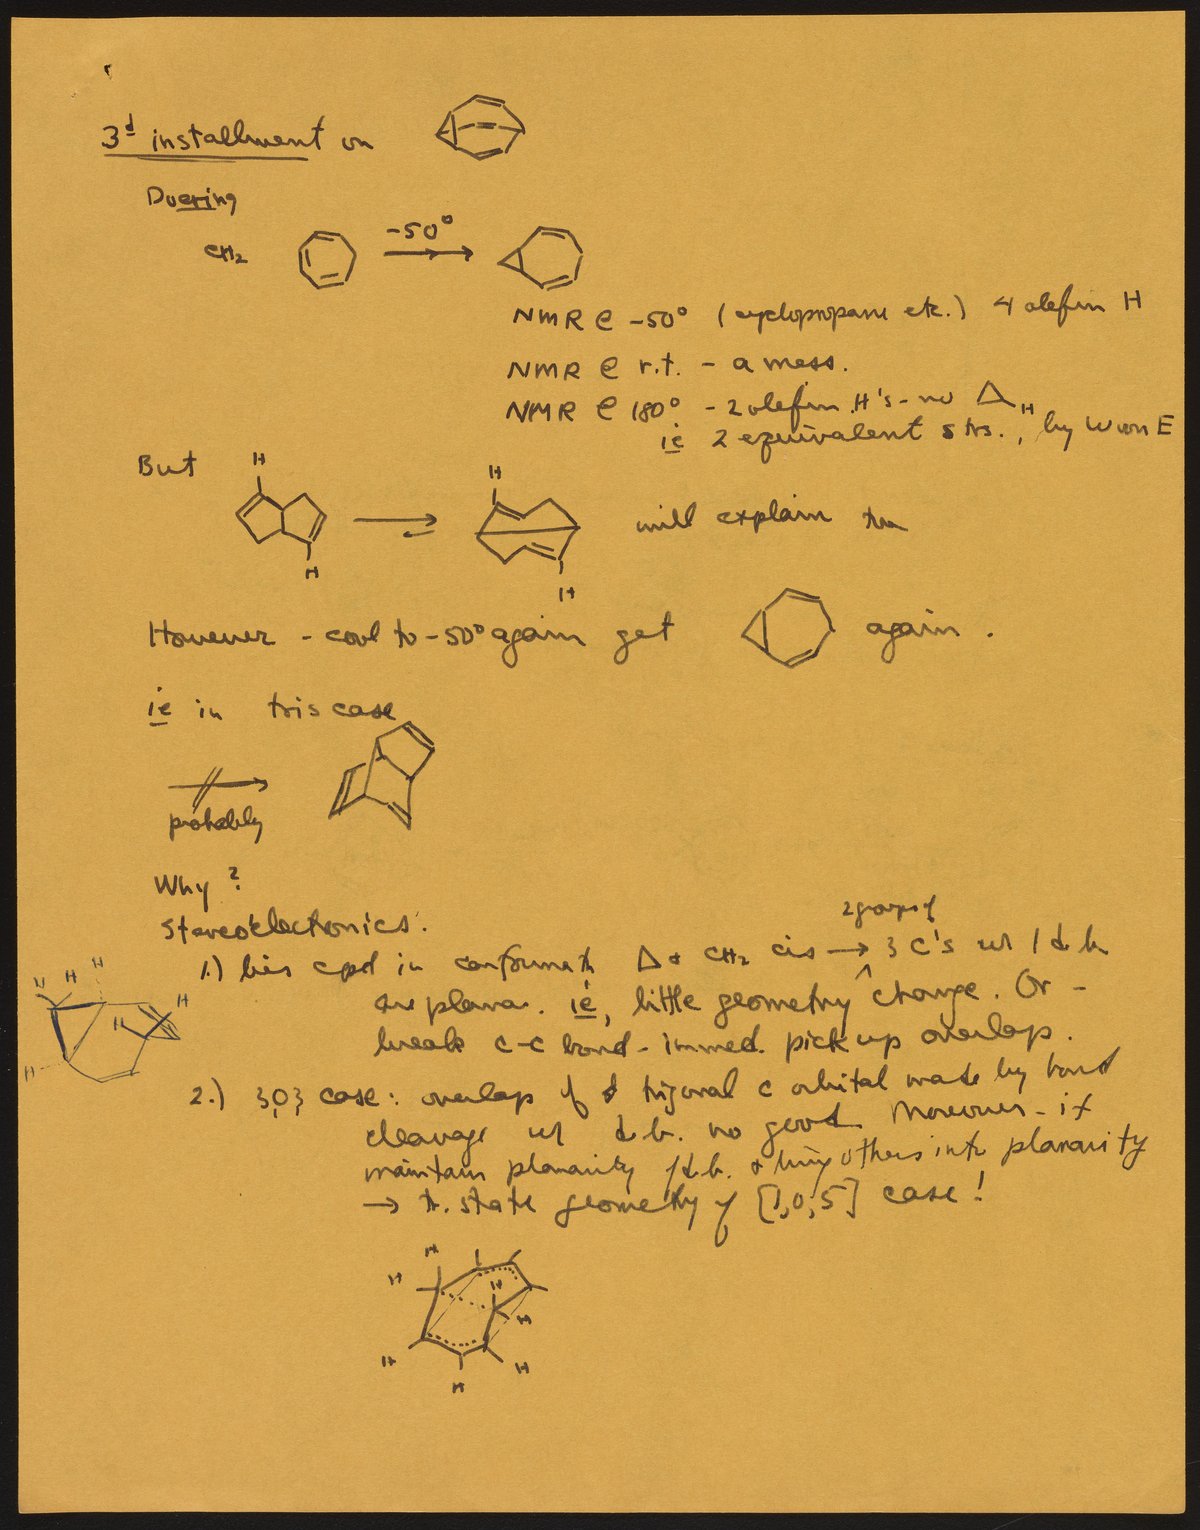 3d installment on
Doering
CH2 -50°
NMR @ -50° (cyclopropane etc.) 4 olefin H
NMR @ r.t. - a mess.
NMR @ 180° - 2 olefin H's - no Δ H
ie 2 equivalent strs., by w von E
But H H
H H
will explain this
However - cool to -50° again get again.
ie in this case
probably
Why?
Stereoelectronics.
2 groups of
1.) lies cpd in conform. Δ & CH2 cis → 3 C's w/ 1 d.b.
are planar. ie, little geometry ^ change. Or -
break c-c bond - immed. pick up overlap.
H H H H H H
2.) 3,0,3 case: overlap of trigonal c orbital made by bond
cleavage w/ d.b. no good. Moreover - if
maintain planarity / d.b. & bring others into planarity
→ tr. state geometry of [1,0,5] case!
H H H H H H H